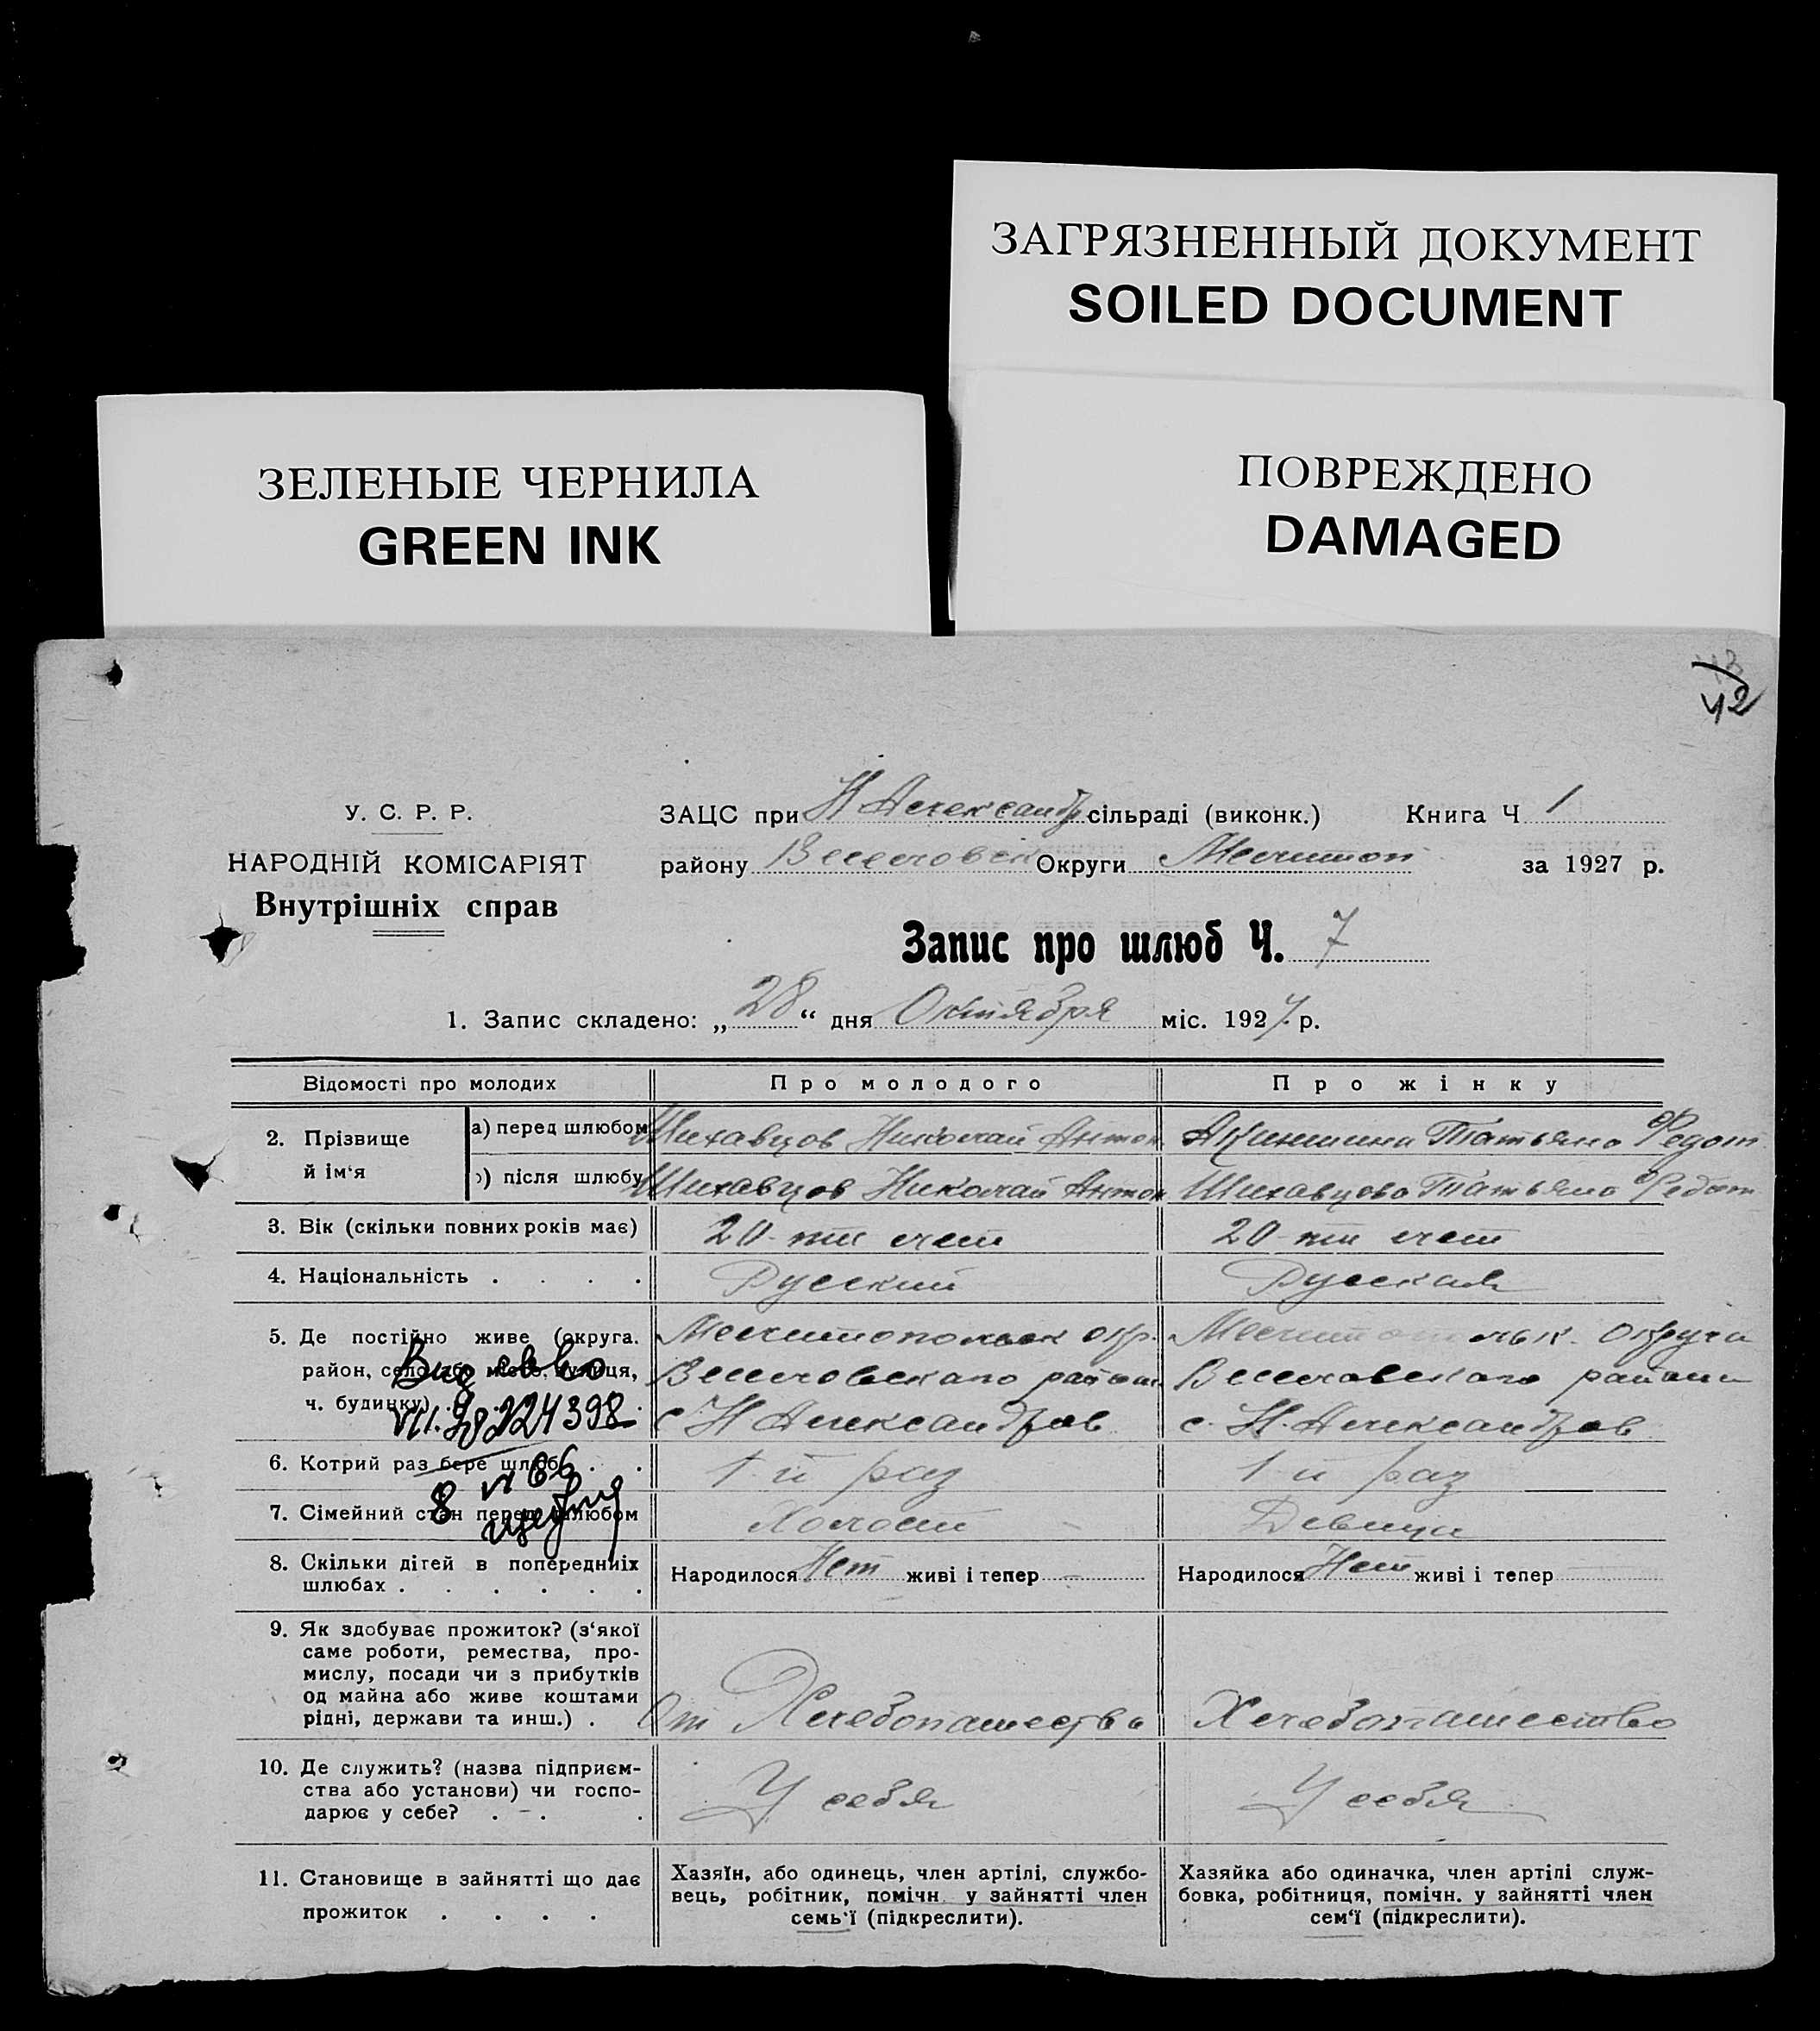 ЗАГРЯЗНЕННЫЙ ДОКУМЕНТ
SOILED DOCUMENT
ЗЕЛЕНЫЕ ЧЕРНИЛА
GREEN INK
ПОВРЕЖДЕНО
DAMAGED
42
У. С. Р. Р.
НАРОДНІЙ КОМІСАРІЯТ
Внутрішніх справ
ЗАЦС при Н Александр сільраді (виконк.) Книга Ч 1
району Веселовск Округи Мелитоп за 1927 р.
Запис про шлюб Ч. 7
1. Запис складено: „28“ дня Октября міс. 1927 р.
Відомості про молодих
Про молодого
Про жінку
2. Прізвище й ім‘я
а) перед шлюбом Шихавцов Николай Антон Акиншина Татьяна Федот
б) після шлюбу Шихавцов Николай Антон Шихавцова Татьяна Федот
3. Вік (скільки повних років має) 20-ти лет 20-ти лет
4. Національність . . . . Русский Русская
5. Де постійно живе (округа. Мелитопольск окр. Мелитопольск. Округа
район, село або місто, вулиця, Веселовскаго район Веселовскаго района
ч. будинку) с Н Александров с. Н. Александров
6. Котрий раз бере шлюб . . 1-й раз 1-й раз
7. Сімейний стан перед шлюбом Холост Девица
8. Скільки дітей в попередниіх
шлюбах . . . . . .
Народилося Нет живі і тепер –
Народилося Нет живі і тепер
9. Як здобуває прожиток? (з‘якої
саме роботи, ремества, про-
мислу, посади чи з прибутків
од майна або живе коштами
рідні, держави та инш.) . От Хлебопашества Хлебопашество
10. Де служить? (назва підприєм-
ства або установи) чи госпо-
дарює у себе? . . . У себя У себя
11. Становище в зайнятті що дає
прожиток . . . .
Хазяїн, або одинець, член артілі, службо-
вець, робітник, помічн. у зайнятті член
семь‘ї (підкреслити).
Хазяйка або одиначка, член артілі служ-
бовка, робітниця, помічн. у зайнятті член
сем‘ї (підкреслити).